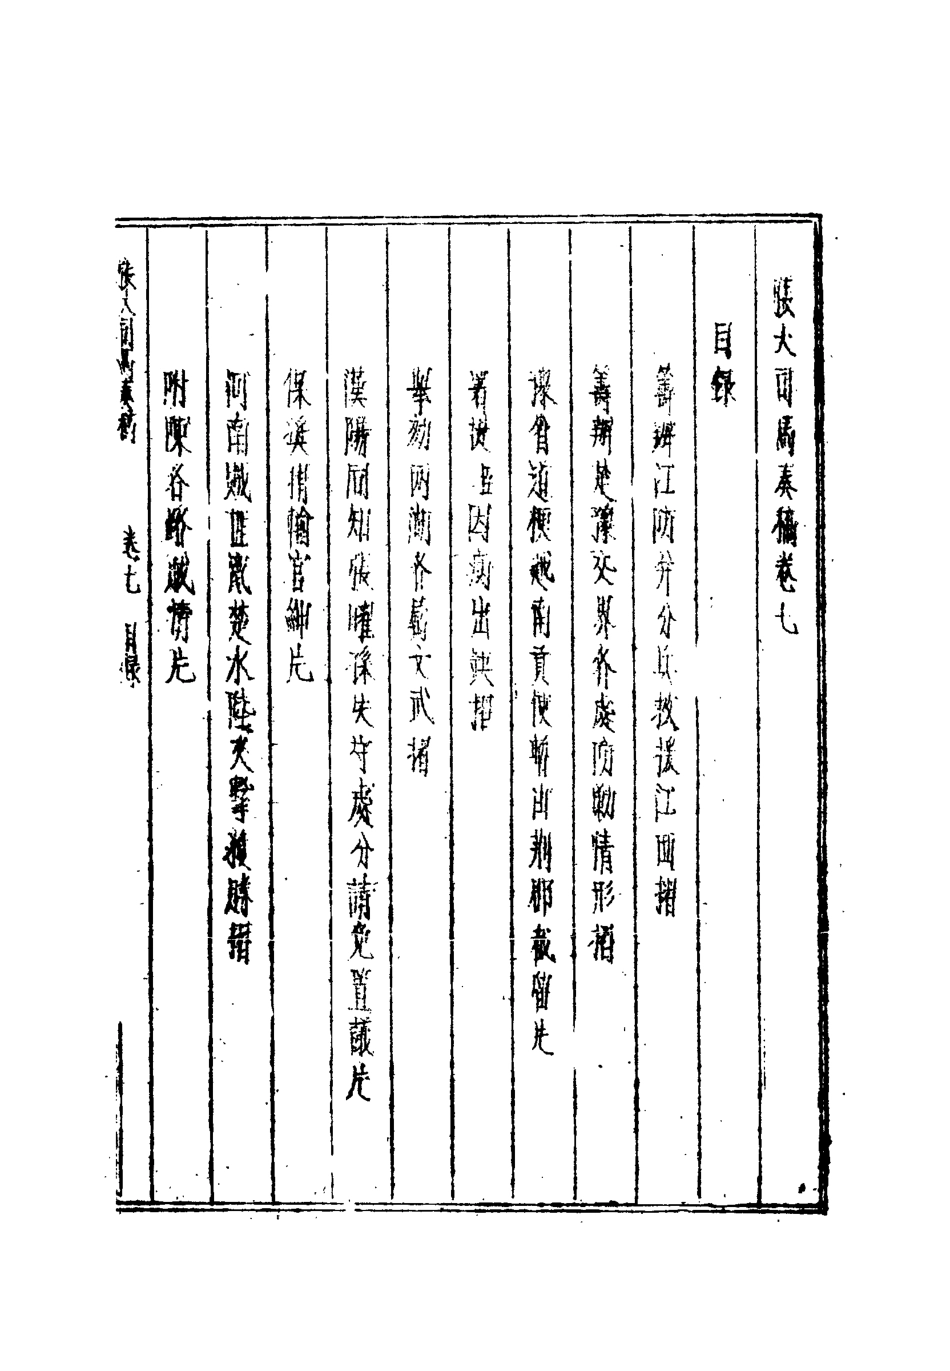 張大司馬奏稿卷七
目錄
籌辦江防并分兵救援江西摺
籌辦楚豫交界各處防勦情形摺
豫省道梗越南貢使暫由荆郡截留片
署提臣因病出缺摺
舉劾两湖各屬文武摺
漢陽同知張曜孫失守處分請免置議片
保奨捐輸官紳片
河南賊匪竄楚水陸夾擊獲勝摺
附陳各路賊情片
張大司馬奏稿 卷七 目錄